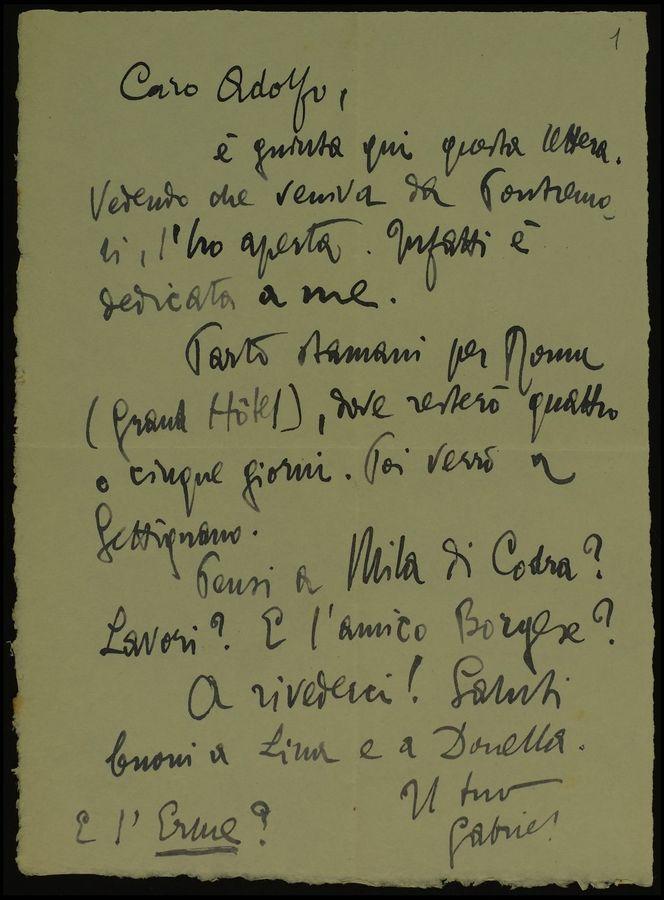 1
Caro Adolfo,
è giunta qui questa lettera.
Vedendo che veniva da Pontremo-
li, l'ho aperta. Infatti è
dedicata a me.
Parto stamani per Roma
(Grand Hôtel), dove resterò quattro
o cinque giorni. Poi verrò a
Settignano.
Pensi a Mila di Codra?
Lavori? E l'amico Borgese?
A rivederci! Saluti
buoni a Lina e a Donella.
Il tuo
Gabriel
E l'Erme?